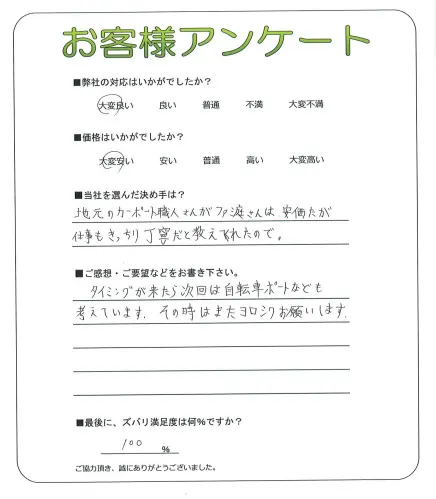 お客様アンケート
■弊社の対応はいかがでしたか?
大変良い 良い 普通 不満 大変不満
■価格はいかがでしたか?
大変安い 安い 普通 高い 大変高い
■当社を選んだ決め手は?
地元のカーポート職人さんが さんは 安価だが
仕事もきっちり丁寧だと教えてくれたので。
■ご感想・ご要望などをお書き下さい。
タイミングが来たら次回は自転車ポートなども
考えています. その時はまたヨロシクお願いします.
■最後に、ズバリ満足度は何%ですか?
100 %
ご協力頂き、誠にありがとうございました。